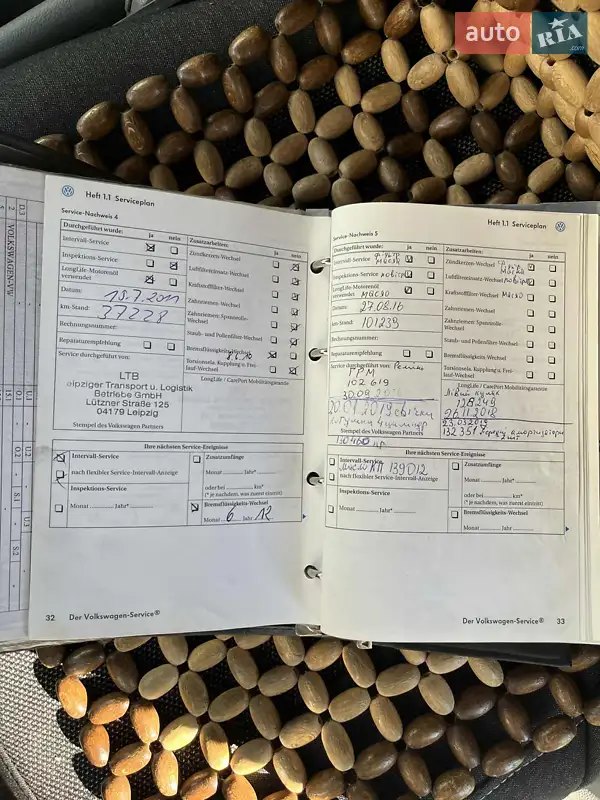 auto RIA .com
Heft 1.1 Serviceplan
Service-Nachweis 4
Durchgeführt wurde: ja nein
Intervall-Service
Inspektions-Service
LongLife-Motorenöl verwendet
Datum: 18.7.2011
km-Stand: 37228
Rechnungsnummer:
Reparaturempfehlung
Service durchgeführt von:
LTB
Leipziger Transport u. Logistik
Betriebe GmbH
Lützner Straße 125
04179 Leipzig
Stempel des Volkswagen Partners
Zusatzarbeiten: ja nein
Zündkerzen-Wechsel
Luftfiltereinsatz-Wechsel
Kraftstofffilter-Wechsel
Zahnriemen-Wechsel
Zahnriemen-Spannrolle-
Wechsel
Staub- und Pollenfilter-Wechsel
Bremsflüssigkeits-Wechsel
Torsionsela. Kupplung u. Frei-
lauf-Wechsel
LongLife / CarePort Mobilitätsgarantie
Ihre nächsten Service-Ereignisse
Intervall-Service
nach flexibler Service-Intervall-Anzeige
Inspektions-Service
Monat Jahr*
Zusatzumfänge
Monat Jahr*
oder bei km*
(* je nachdem, was zuerst eintritt)
Bremsflüssigkeits-Wechsel
Monat 6 Jahr 12
32 Der Volkswagen-Service®
Heft 1.1 Serviceplan
Service-Nachweis 5
Durchgeführt wurde: ja nein
Intervall-Service
Inspektions-Service
LongLife-Motorenöl
verwendet масло
Datum: 27.08.16
km-Stand: 101239
Rechnungsnummer:
Reparaturempfehlung
Service durchgeführt von:
ГРМ
102 619
Stempel des Volkswagen Partners
Zusatzarbeiten: ja nein
Zündkerzen-Wechsel
Luftfiltereinsatz-Wechsel
Kraftstofffilter-Wechsel
Zahnriemen-Wechsel
Zahnriemen-Spannrolle-
Wechsel
Staub- und Pollenfilter-Wechsel
Bremsflüssigkeits-Wechsel
Torsionsela. Kupplung u. Frei-
lauf-Wechsel
LongLife / CarePort Mobilitätsgarantie
26.11.2018
132 351
Ihre nächsten Service-Ereignisse
Intervall-Service
масло КП 139012
nach flexibler Service-Intervall-Anzeige
Inspektions-Service
Monat Jahr*
Zusatzumfänge
Monat Jahr*
oder bei km*
(* je nachdem, was zuerst eintritt)
Bremsflüssigkeits-Wechsel
Monat Jahr
Der Volkswagen-Service® 33